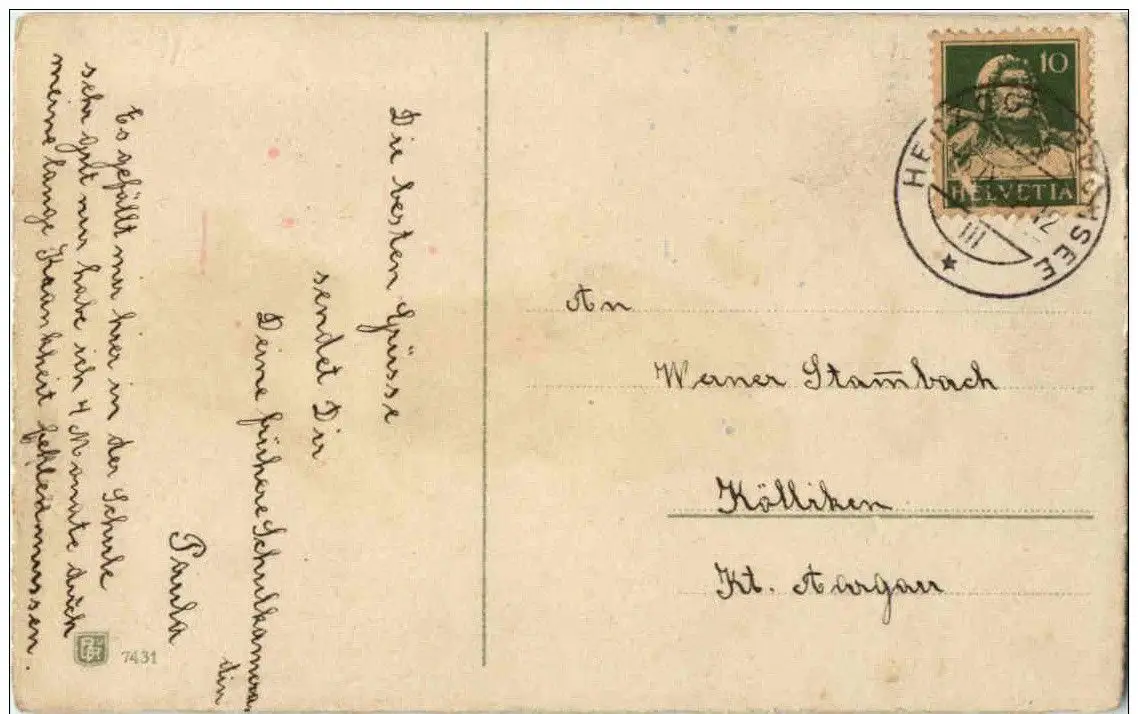 Die besten Grüsse
sendet Dir
Deine frühere Schulkamera
din
Paula
Es gefällt mir hier in der Schule
sehr gut nur habe ich 4 Monate durch
meine lange Krankheit fehlen müssen.
7431
10
HELVETIA
SEE
III
12
An
Werner Stam̅bach
Kölliken
Kt. Aargau